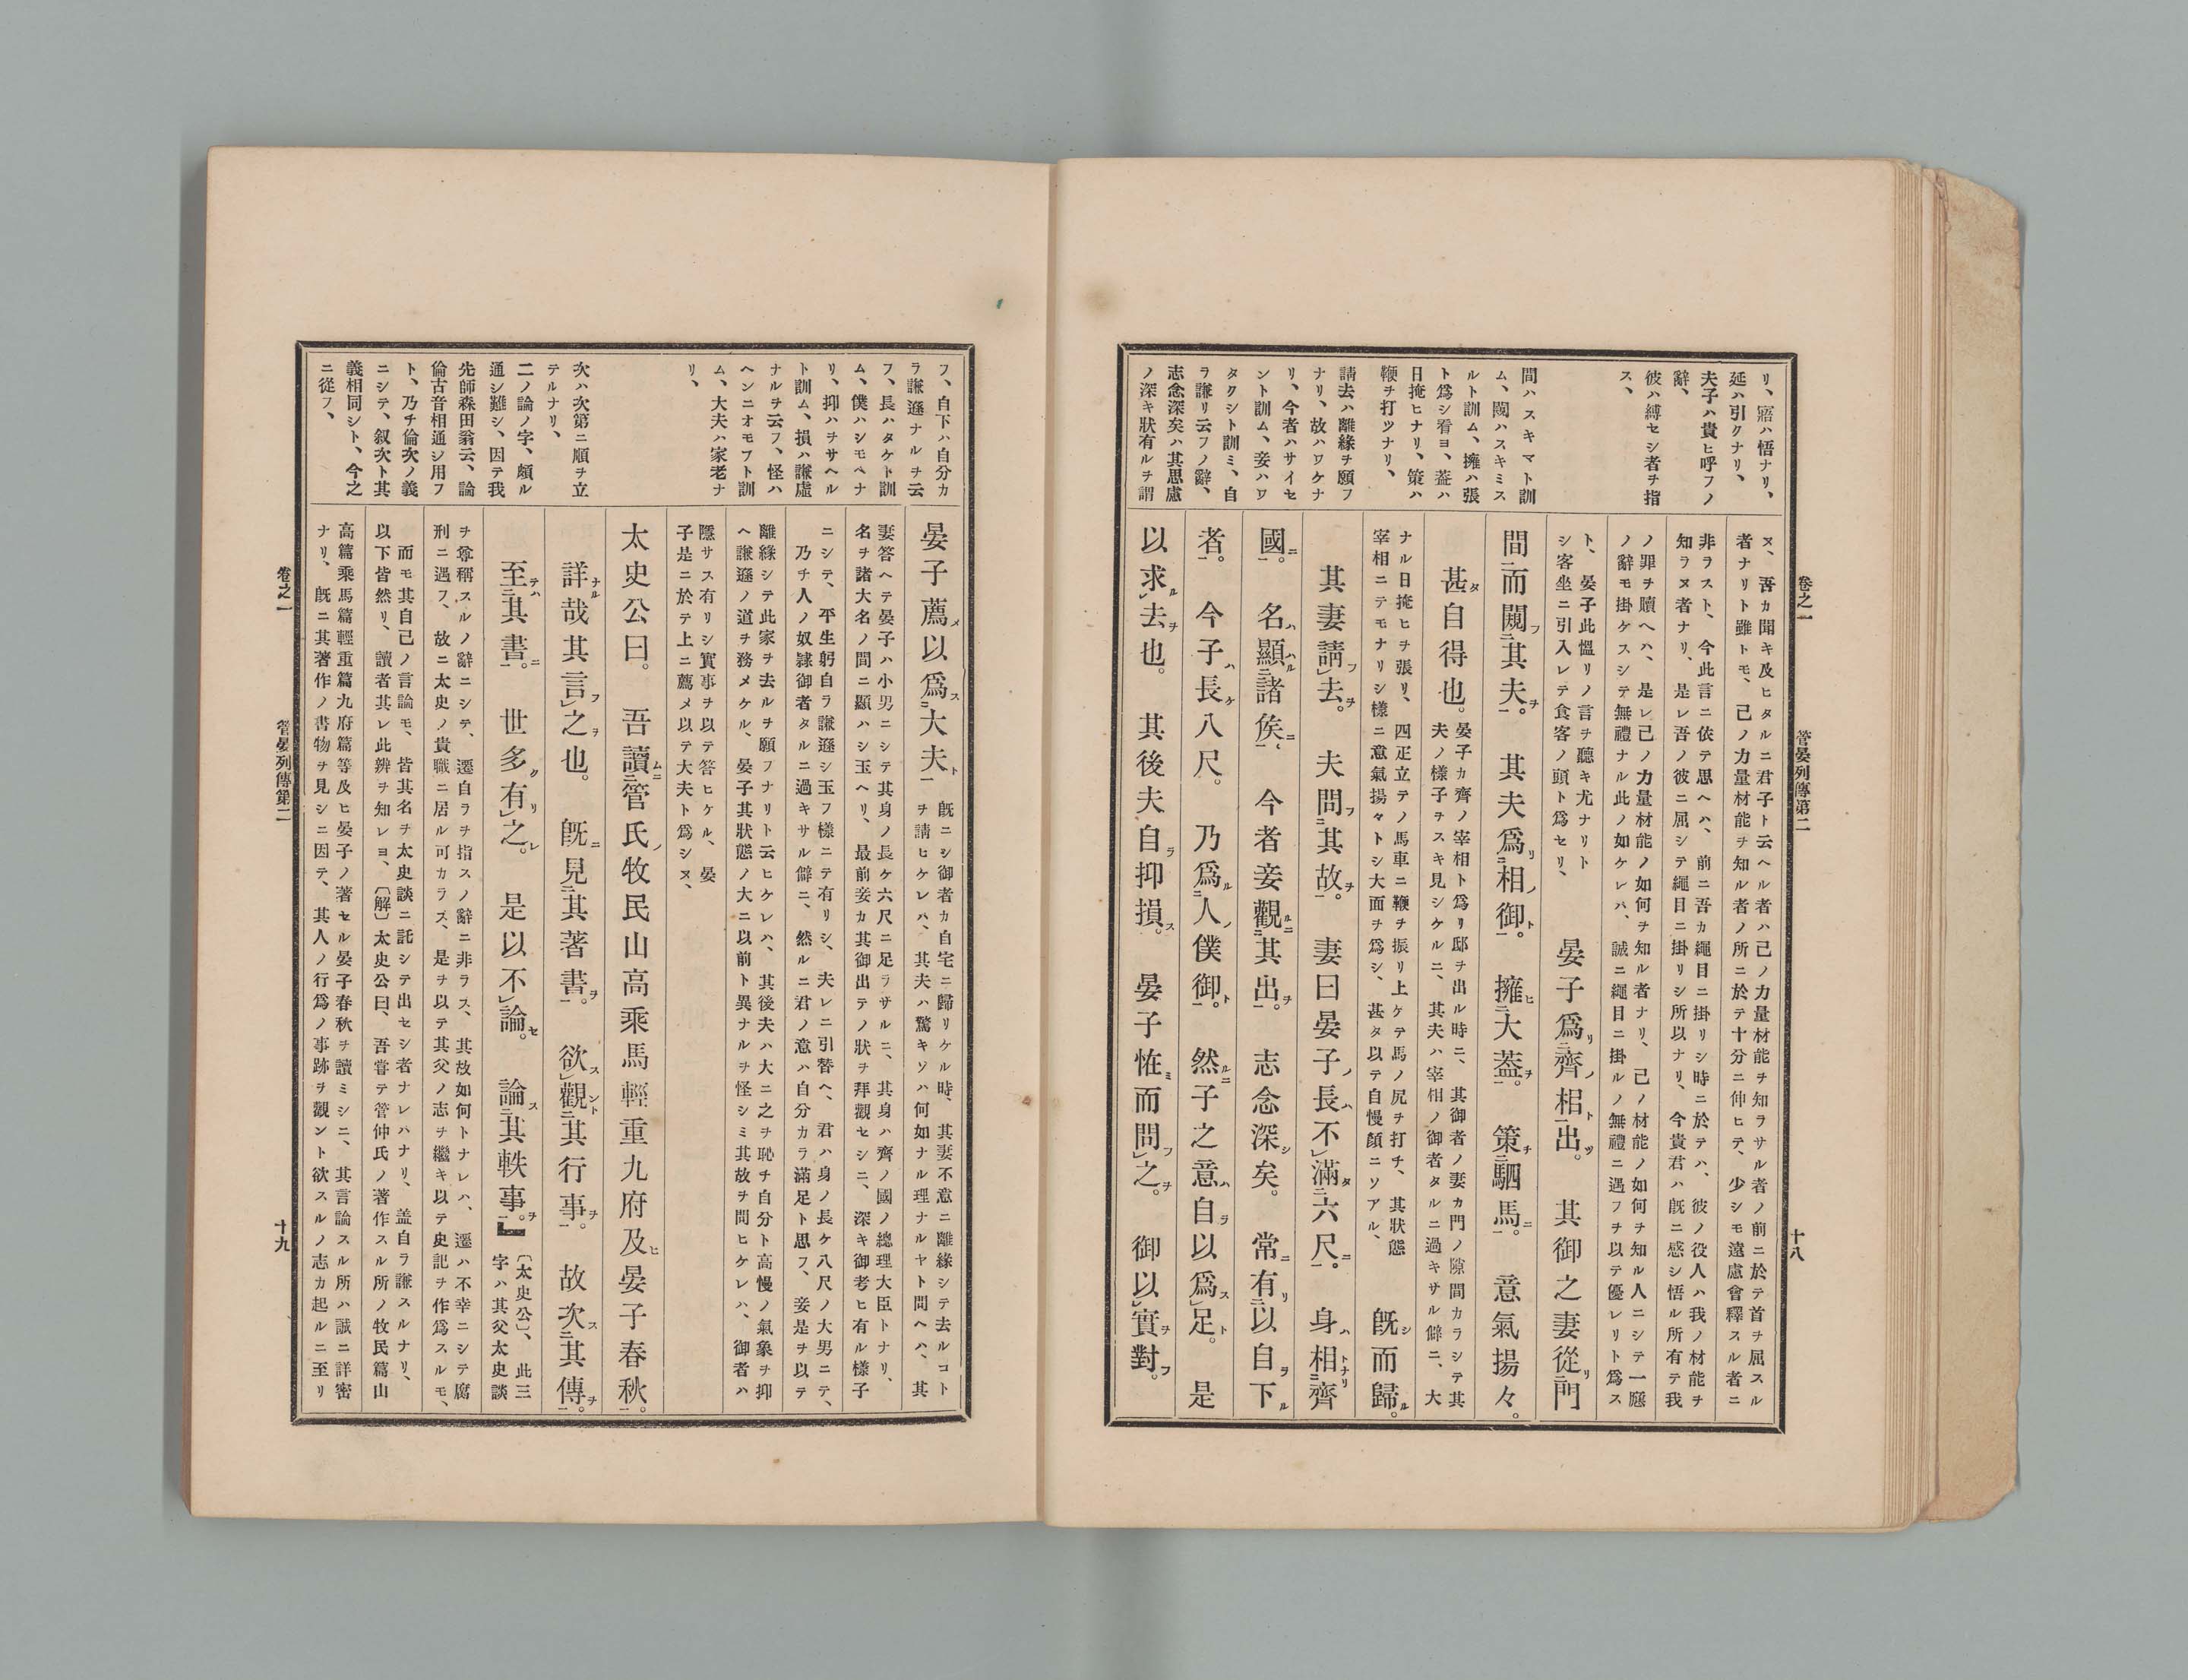 リ、寤ハ悟ナリ、
延ハ引クナリ、
夫子ハ貴ヒ呼フノ
辭、
彼ハ縛セシ者ヲ指
ス、
間ハスキマト訓
ム、闚ハスキミス
ルト訓ム、擁ハ張
ト爲シ看ヨ、葢ハ
日掩ヒナリ、策ハ
鞭ヲ打ツナリ、
請去ハ離緣ヲ願フ
ナリ、故ハワケナ
リ、今者ハサイセ
ント訓ム、妾ハワ
タクシト訓ミ、自
ラ謙リ云フノ辭、
志念深矣ハ其思慮
ノ深キ狀有ルヲ謂
ヌ、吾カ聞キ及ヒタルニ君子ト云ヘル者ハ己ノ力量材能ヲ知ラサル者ノ前ニ於テ首ヲ屈スル
者ナリト雖トモ、己ノ力量材能ヲ知ル者ノ所ニ於テ十分ニ伸ヒテ、少シモ遠慮會釋スル者ニ
非ラスト、今此言ニ依テ思ヘハ、前ニ吾カ繩目ニ掛リシ時ニ於テハ、彼ノ役人ハ我ノ材能ヲ
知ラヌ者ナリ、是レ吾ノ彼ニ屈シテ繩目ニ掛リシ所以ナリ、今貴君ハ既ニ感シ悟ル所有テ我
ノ罪ヲ贖ヘハ、是レ己ノ力量材能ノ如何ヲ知ル者ナリ、己ノ材能ノ如何ヲ知ル人ニシテ一應
ノ辭モ掛ケスシテ無禮ナル此ノ如ケレハ、誠ニ繩目ニ掛ルノ無禮ニ遇フヲ以テ優レリト爲ス
ト、晏子此慍リノ言ヲ聽キ尤ナリト
シ客坐ニ引入レテ食客ノ頭ト爲セリ、
晏子爲齊相出。其御之妻從門
間而闚其夫。其夫爲相御。擁大葢。策駟馬。意氣揚々。
甚自得也。
晏子カ齊ノ宰相ト爲リ邸ヲ出ル時ニ、其御者ノ妻カ門ノ隙間カラシテ其
夫ノ樣子ヲスキ見シケルニ、其夫ハ宰相ノ御者タルニ過キサル僻ニ、大
ナル日掩ヒヲ張リ、四疋立テノ馬車ニ鞭ヲ振リ上ケテ馬ノ尻ヲ打チ、其狀態
宰相ニテモナリシ樣ニ意氣揚々トシ大面ヲ爲シ、甚タ以テ自慢顏ニソアル、
既而歸。
其妻請去。夫問其故。妻曰晏子長不滿六尺。身相齊
國。名顯諸矦、今者妾觀其出。志念深矣。常有以自下
者。今子長八尺。乃爲人僕御。然子之意自以爲足。是
以求去也。其後夫自抑損。晏子恠而問之。御以實對。
卷之一 管晏列傳第二 十八
フ、自下ハ自分カ
ラ謙遜ナルヲ云
フ、長ハタケト訓
ム、僕ハシモベナ
リ、抑ハヲサヘル
ト訓ム、損ハ謙虛
ナルヲ云フ、怪ハ
ヘンニオモフト訓
ム、大夫ハ家老ナ
リ、
次ハ次第ニ順ヲ立
テルナリ、
二ノ論ノ字、頗ル
通シ難シ、因テ我
先師森田翁云、論
倫古音相通シ用フ
ト、乃チ倫次ノ義
ニシテ、叙次ト其
義相同シト、今之
ニ從フ、
晏子薦以爲大夫
既ニシ御者カ自宅ニ歸リケル時、其妻不意ニ離緣シテ去ルコト
ヲ請ヒケレハ、其夫ハ驚キソハ何如ナル理ナルヤト問ヘハ、其
妻答ヘテ晏子ハ小男ニシテ其身ノ長ケ六尺ニ足ラサルニ、其身ハ齊ノ國ノ總理大臣トナリ、
名ヲ諸大名ノ間ニ顯ハシ玉ヘリ、最前妾カ其御出テノ狀ヲ拜觀セシニ、深キ御考ヒ有ル樣子
ニシテ、平生躬自ラ謙遜シ玉フ樣ニテ有リシ、夫レニ引替ヘ、君ハ身ノ長ケ八尺ノ大男ニテ、
乃チ人ノ奴隷御者タルニ過キサル僻ニ、然ルニ君ノ意ハ自分カラ滿足ト思フ、妾是ヲ以テ
離緣シテ此家ヲ去ルヲ願フナリト云ヒケレハ、其後夫ハ大ニ之ヲ恥チ自分ト高慢ノ氣象ヲ抑
ヘ謙遜ノ道ヲ務メケル、晏子其狀態ノ大ニ以前ト異ナルヲ怪シミ其故ヲ問ヒケレハ、御者ハ
隱サス有リシ實事ヲ以テ答ヒケル、晏
子是ニ於テ上ニ薦メ以テ大夫ト爲シヌ、
太史公曰。吾讀管氏牧民山高乘馬輕重九府及晏子春秋。
詳哉其言之也。既見其著書。欲觀其行事。故次其傳。
至其書。世多有之。是以不論。論其軼事。』
〔太史公〕、此三
字ハ其父太史談
ヲ尊稱スルノ辭ニシテ、遷自ラヲ指スノ辭ニ非ラス、其故如何トナレハ、遷ハ不幸ニシテ腐
刑ニ遇フ、故ニ太史ノ貴職ニ居ル可カラス、是ヲ以テ其父ノ志ヲ繼キ以テ史記ヲ作爲スルモ、
而モ其自己ノ言論モ、皆其名ヲ太史談ニ託シテ出セシ者ナレハナリ、盖自ラ謙スルナリ、
以下皆然リ、讀者其レ此辨ヲ知レヨ、〔解〕太史公曰、吾嘗テ管仲氏ノ著作スル所ノ牧民篇山
高篇乘馬篇輕重篇九府篇等及ヒ晏子ノ著セル晏子春秋ヲ讀ミシニ、其言論スル所ハ誠ニ詳密
ナリ、既ニ其著作ノ書物ヲ見シニ因テ、其人ノ行爲ノ事跡ヲ觀ント欲スルノ志カ起ルニ至リ
卷之一 管晏列傳第二 十九